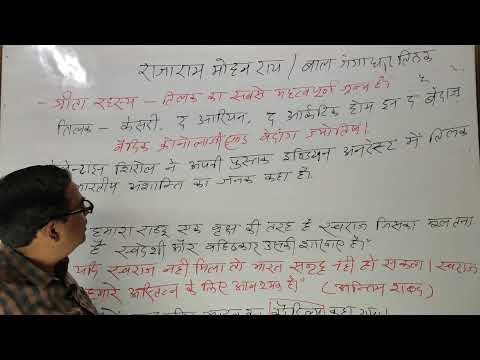 राजाराम मोहन राय / बाल गंगाधर तिलक
- गीता रहस्य - तिलक का सबसे महत्वपूर्ण ग्रन्थ है।
तिलक - केसरी, द आरियन, द आर्कटिक होम इन द वेदाज
वैदिक क्रोनोलाजी एण्ड वेदांग ज्योतिष।
शिरोल ने अपनी पुस्तक इण्डियन अनरेस्ट में तिलक
भारतीय अशान्ति का जनक कहा है।
हमारा राष्ट्र एक वृक्ष की तरह है स्वराज जिसका मूल तना
है स्वदेशी और बहिष्कार उसकी शाखाएं हैं।"
यदि स्वराज नहीं मिला तो भारत समृद्ध नहीं हो सकता। स्वराज
हमारे अस्तित्व के लिए आवश्यक है।" (अन्तिम शब्द)
कहा गया